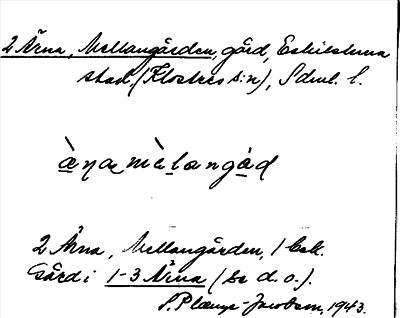 2 Ärna, Mellangården, gård, Eskilstuna
stad, (Klosters s:n), Sdml. l.
àṇa mèḷangàḍ
2 Ärna, Mellangården, 1 bebt.
Gård i 1-3 Ärna (se d. o.).
Jacobsen, 1943.